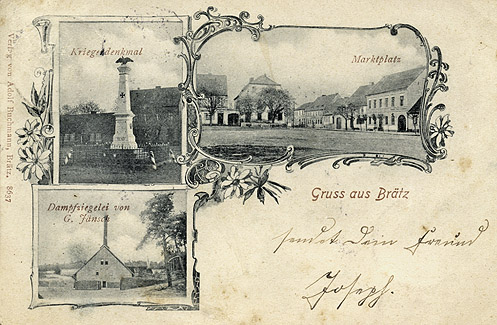 Kriegerdenkmal
Marktplatz
Dampfziegelei von
G. Jänsch
Gruss aus Brätz
sendet Dein Freund
Joseph.
Verlag von Adolf Buchmann, Brätz. 8637